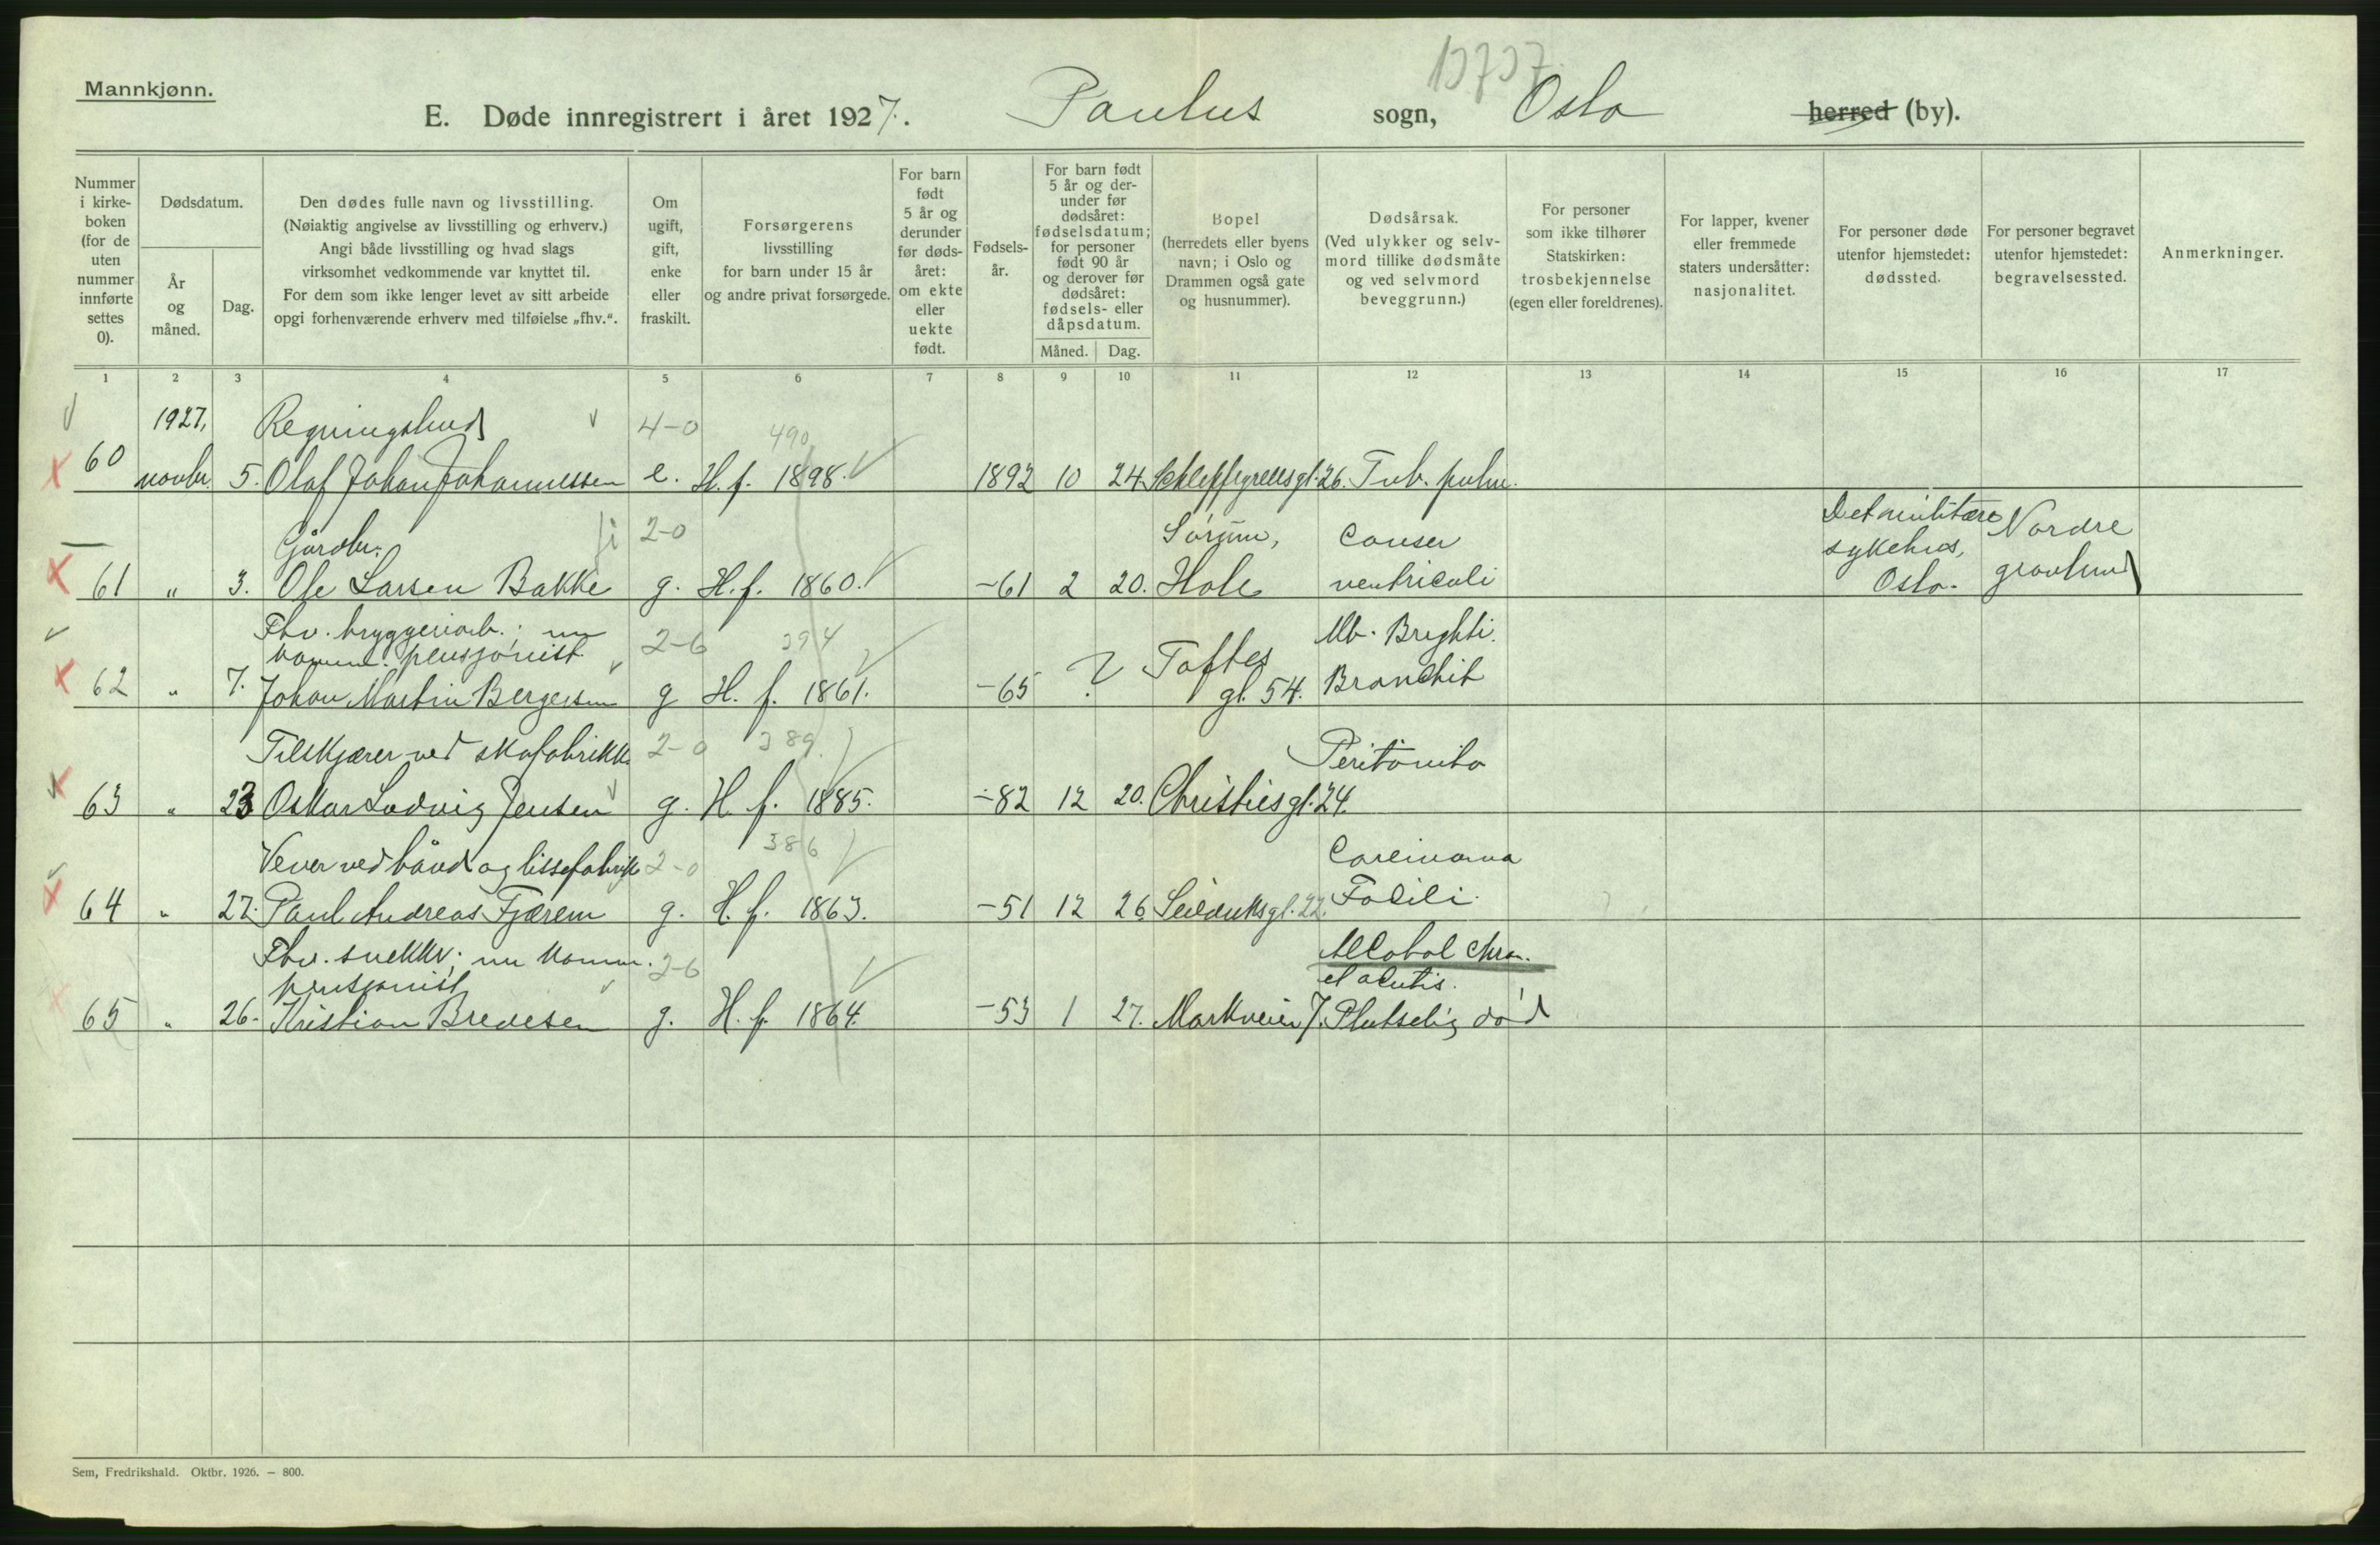 Mannkjønn.
13737
E. Døde innregistrert i året 1927. Paulus sogn, Oslo herred (by).
Nummer i kirke- boken (for de uten nummer innførte settes 0).
Dødsdatum.
År og måned.
Dag.
Den dødes fulle navn og livsstilling.
(Nøiaktig angivelse av livsstilling og erhverv.)
Angi både livsstilling og hvad slags
virksomhet vedkommende var knyttet til.
For dem som ikke lenger levet av sitt arbeide
opgi forhenværende erhverv med tilføielse „fhv.“.
Om ugift, gift, enke eller fraskilt.
Forsørgerens
livsstilling
for barn under 15 år
og andre privat forsørgede.
For barn født 5 år og derunder før døds- året: om ekte eller uekte født.
Fødsels- år.
For barn født 5 år og der- under før dødsåret: fødselsdatum; for personer født 90 år og derover før dødsåret: fødsels- eller dåpsdatum.
Måned. Dag.
Bopel
(herredets eller byens
navn; i Oslo og
Drammen også gate
og husnummer).
Dødsårsak.
(Ved ulykker og selv-
mord tillike dødsmåte
og ved selvmord
beveggrunn.)
For personer
som ikke tilhører
Statskirken:
trosbekjennelse
(egen eller foreldrenes).
For lapper, kvener
eller fremmede
staters undersåtter:
nasjonalitet.
For personer døde
utenfor hjemstedet:
dødssted.
For personer begravet
utenfor hjemstedet:
begravelsessted.
Anmerkninger.
1 2 3 4 5 6 7 8 9 10 11 12 13 14 15 16 17
1927, Regningsbud 4-0 490
60 novbr. 5. Olaf Johan Johannessen e. H. f. 1898. 1892 10 24. Schleppegrellsgt. 26. Tub. pulm.
Gårdbr. 2-0 Sørum, Cancer Det militære Nordre
sykehus,
61 " 3. Ole Larsen Bakke g. H. f. 1860. -61 2 20. Hole ventriculi Oslo. gravlund
Fhv. bryggeriarb.; nu 2-6 394 Mb. Brighti.
komm. pensjonist.
62 " 7. Johan Martin Bergersen g H. f. 1861. -65 ? Toftes gt. 54. Bronchit
Tilskjærer ved skofabrikk 2-0 389. Peritonito
63 " 23 Oskar Ludvig Jensen g. H. f. 1885. -82 12 20. Christies gt. 24.
Vever ved bånd og lissefabrik 2-0 386 Carcinoma
64 " 27. Paul Andreas Fjærem g. H. f. 1863. -51 12 26. Seilduksgt. 22.
Fhv. snekker; nu komm. 2-6 Alcohol chron.
pensjonist et acutis.
65 " 26. Kristian Bredesen g. H. f. 1864. -53 1 27. Markveien 7. Plutselig død
Sem, Fredrikshald. Oktbr. 1926. — 800.